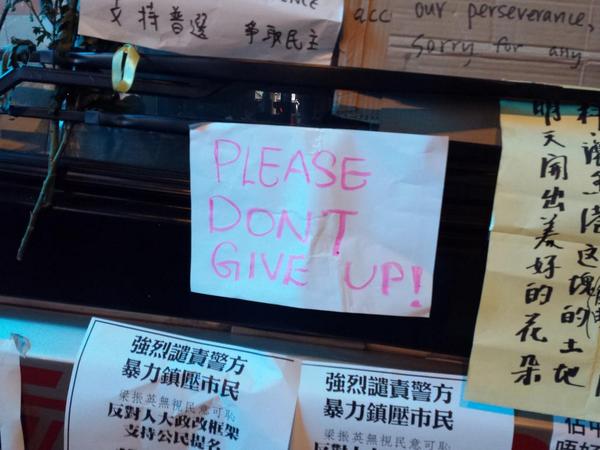 支持普選 爭取民主
our perseverance,
Sorry for any
PLEASE
DON'T
GIVE UP!
这塊的土地
明天開出美好的花朵
強烈譴責警方
暴力鎮壓市民
梁振英無視民意可恥
反對人大政改框架
支持公民提名
強烈譴責警方
暴力鎮壓市民
梁振英無視民意可恥